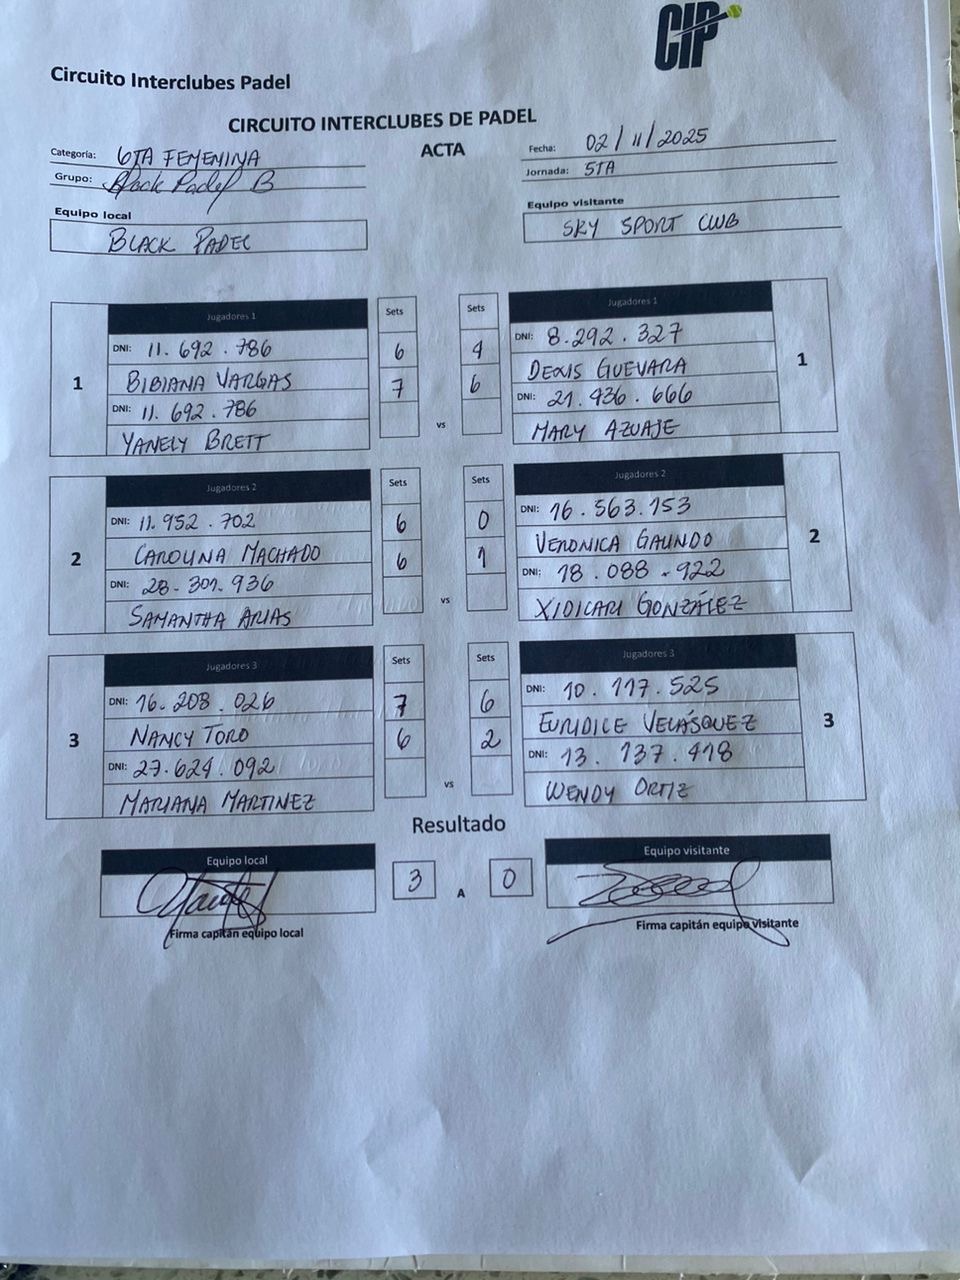 CIP
Circuito Interclubes Padel
CIRCUITO INTERCLUBES DE PADEL
ACTA
Categoría: 6TA FEMENINA
Fecha: 02/11/2025
Grupo: Black Padel B
Jornada: 5TA
Equipo local
Equipo visitante
BLACK PADEL
SKY SPORT CLUB
Jugadores 1 Sets Sets Jugadores 1
DNI: 11.692.786 6 4 DNI: 8.292.327
1 BIBIANA VARGAS 7 6 DEXIS GUEVARA 1
DNI: 11.692.786 DNI: 21.436.666
YANELY BRETT vs MARY AZUAJE
Jugadores 2 Sets Sets Jugadores 2
DNI: 11.952.702 6 0 DNI: 16.563.153
2 CAROLINA MACHADO 6 1 VERONICA GALINDO 2
DNI: 28-301.936 DNI: 18.088.922
SAMANTHA ARIAS vs XIDICARI GONZÁLEZ
Jugadores 3 Sets Sets Jugadores 3
DNI: 16.208.026 7 6 DNI: 10.117.525
3 NANCY TORO 6 2 EURIDICE VELÁSQUEZ 3
DNI: 27.624.092 DNI: 13.137.418
MARIANA MARTINEZ vs WENDY ORTIZ
Resultado
Equipo local 3 A 0 Equipo visitante
Firma capitán equipo local
Firma capitán equipo visitante